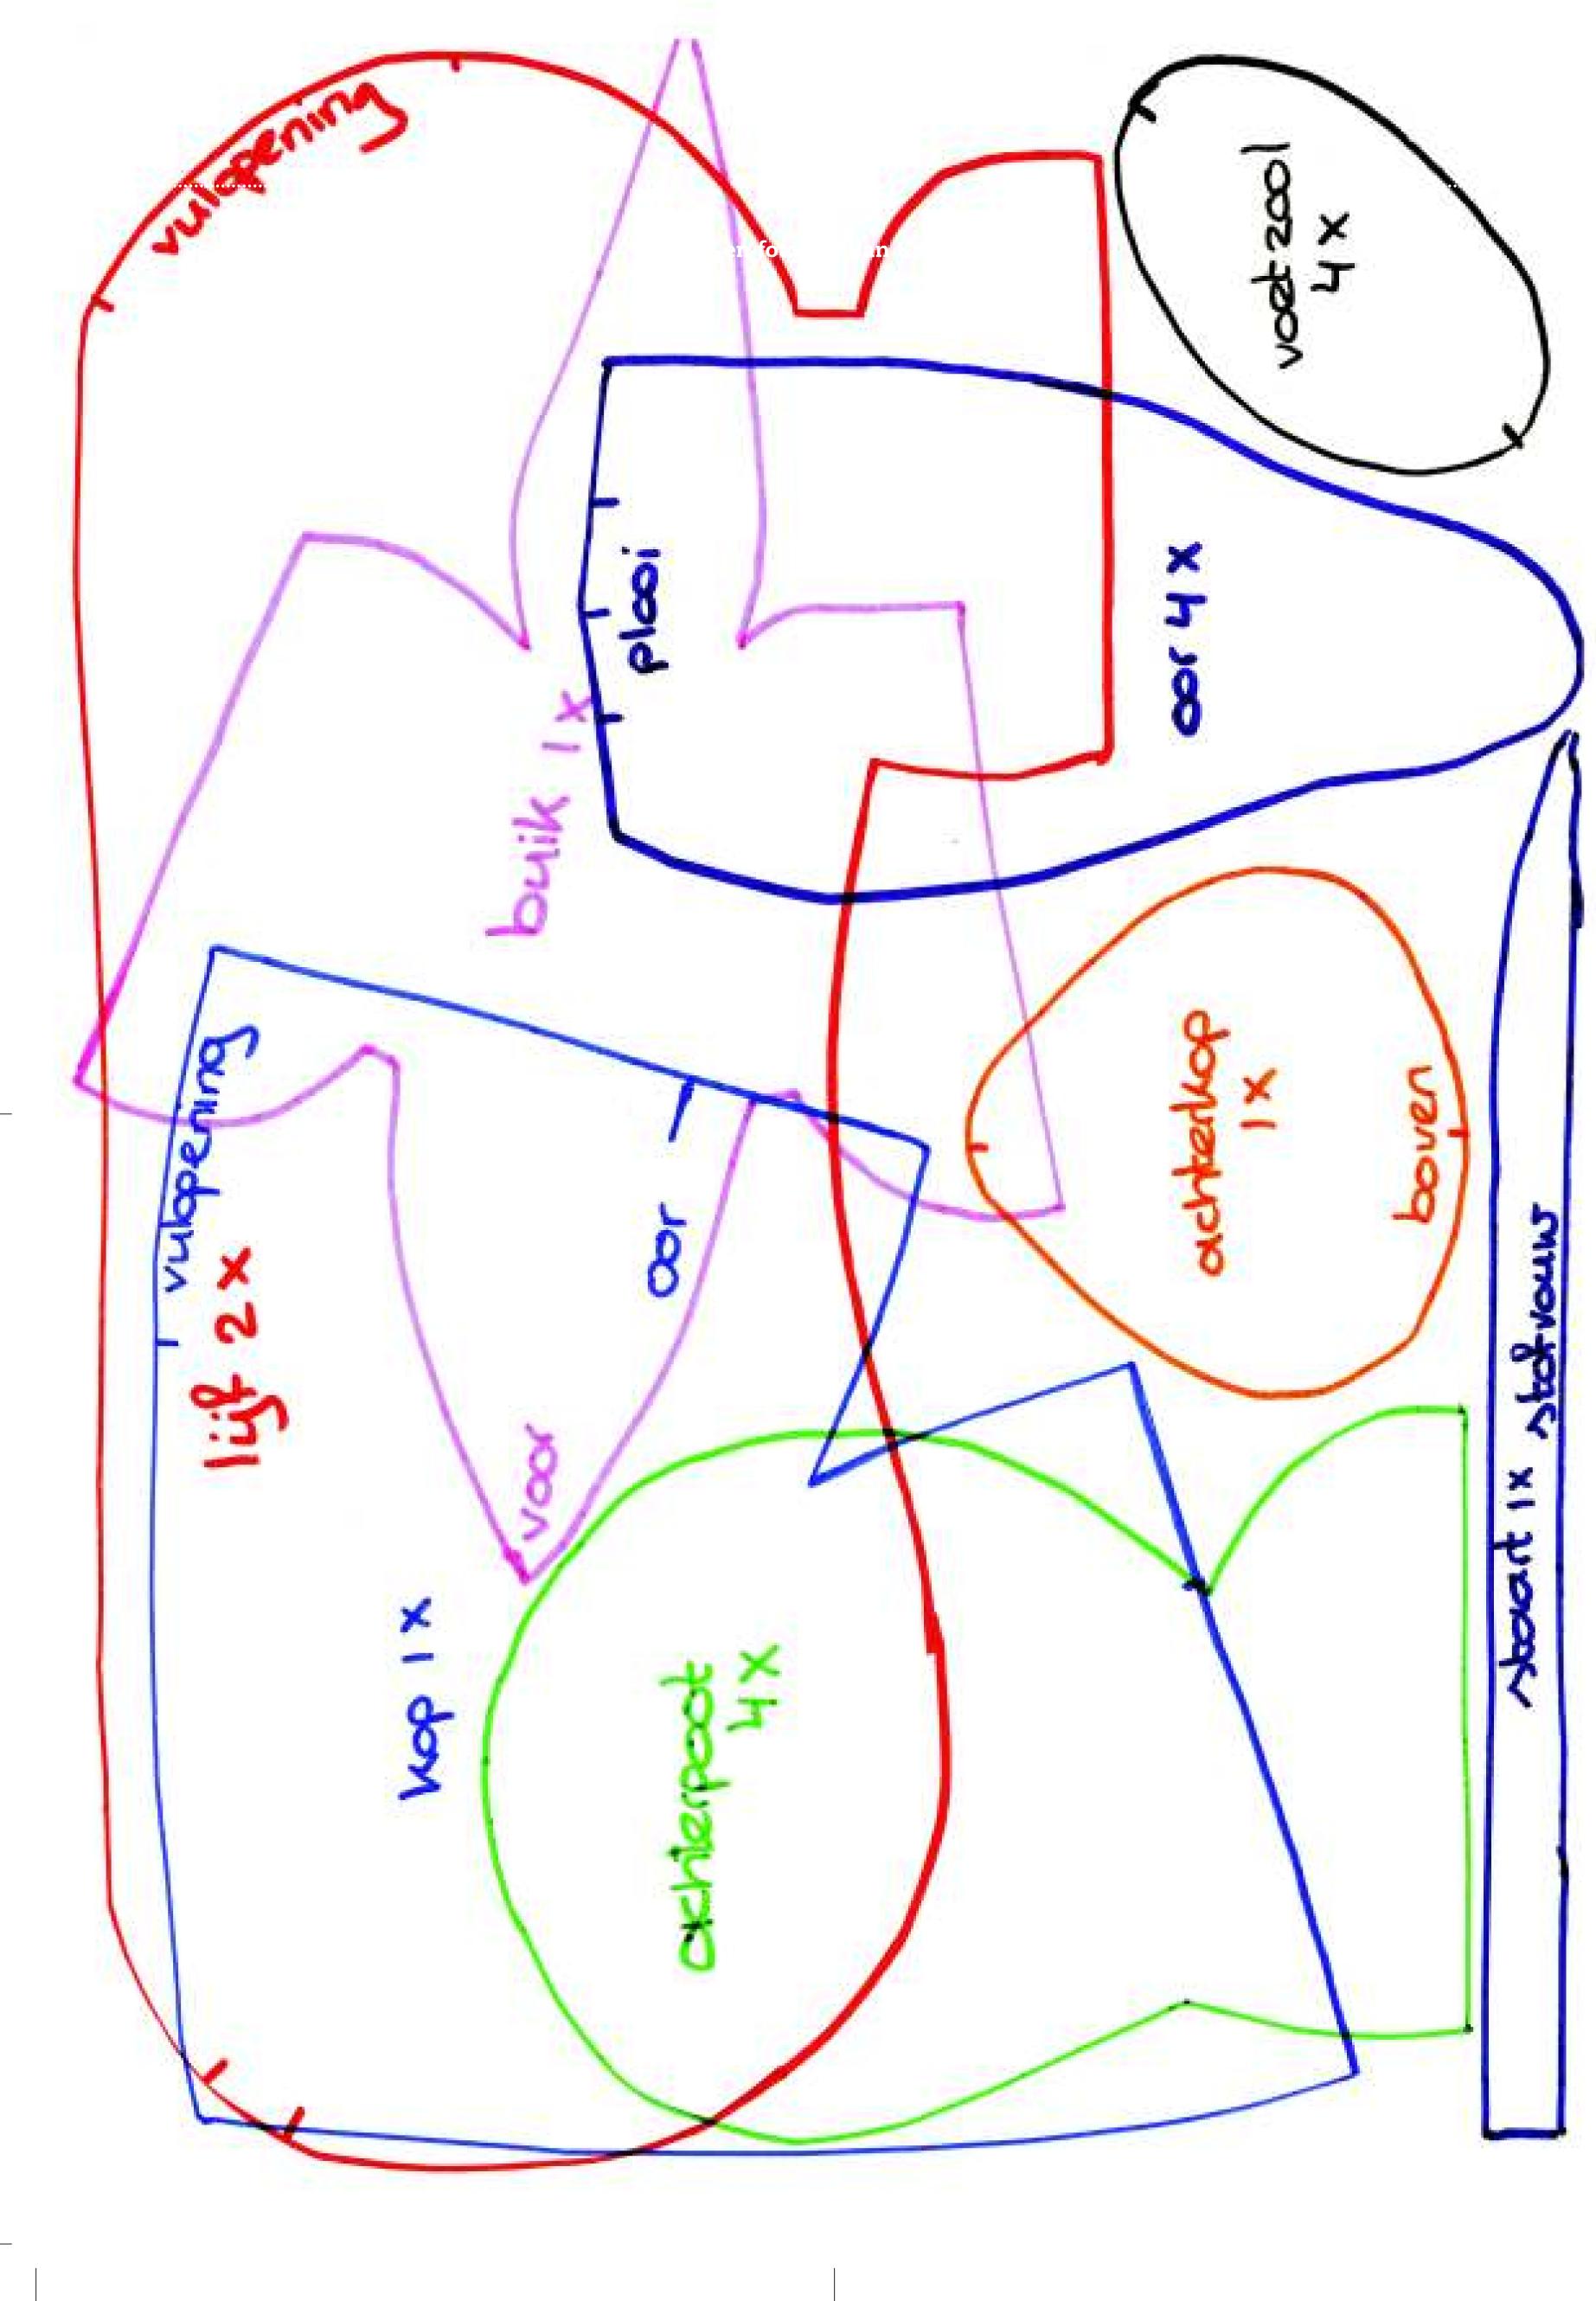 vulopening
voetzool
4 x
plooi
oor 4 x
buik 1x
vulopening
oor
achterkop
1x
boven
lijf 2x
voor
kop 1x
achterpoot
4x
staart 1x stofvouw